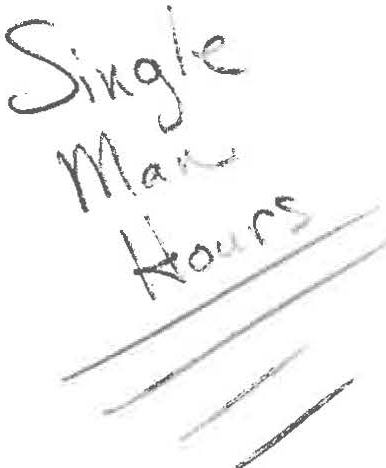 Single
Man
Hours